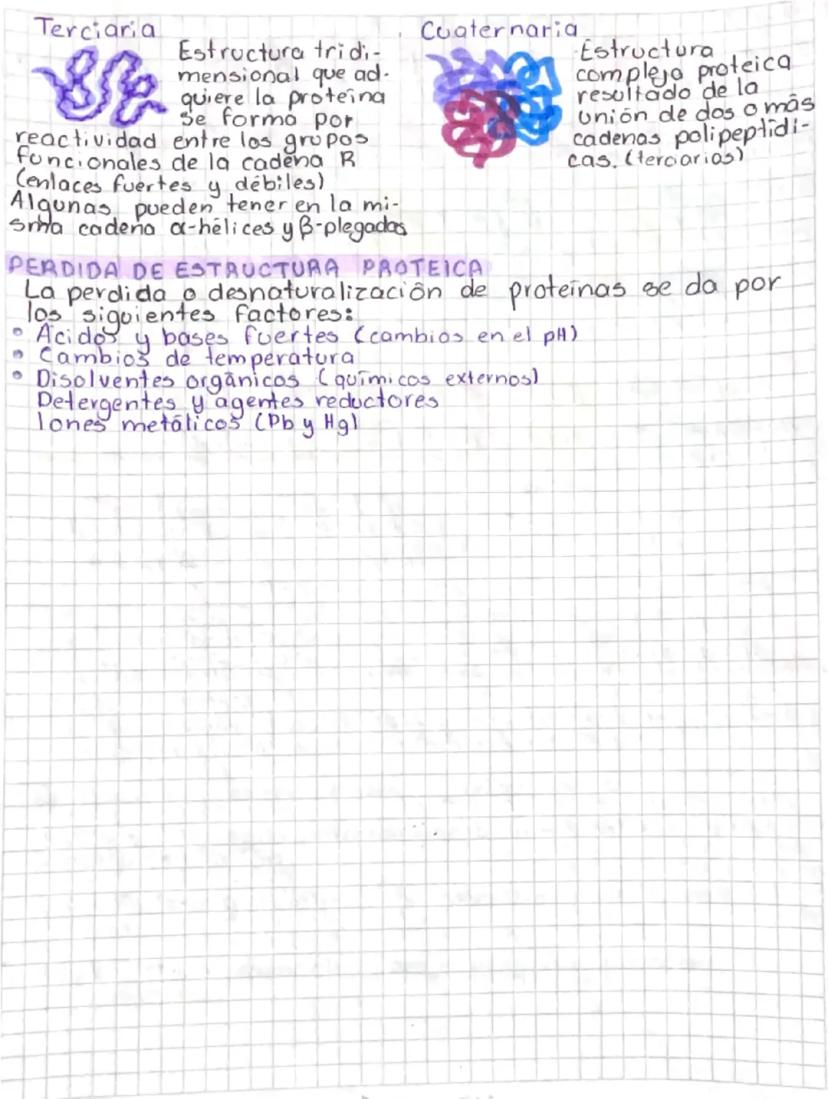 Terciaria
Estructura tridi-
mensional que ad-
quiere la proteína
se forma por
reactividad entre los grupos
funcionales de la cadena R
(enlaces fuertes y débiles)
Algunas pueden tener en la mi-
sma cadena α-hélices y β-plegadas
Cuaternaria
Estructura
compleja proteica
resultado de la
unión de dos o más
cadenas polipeptídi-
cas. (terciarias)
PERDIDA DE ESTRUCTURA PROTEICA
La perdida o desnaturalización de proteínas se da por
los siguientes factores:
• Ácidos y bases fuertes (cambios en el pH)
• Cambios de temperatura
• Disolventes orgánicos (químicos externos)
Detergentes y agentes reductores
Iones metálicos (Pb y Hg)